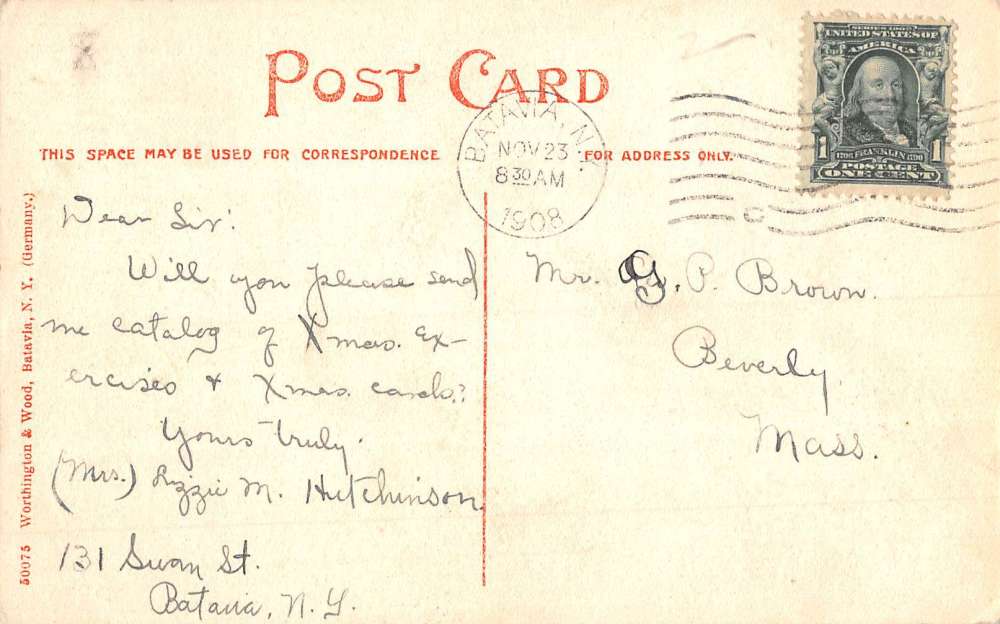 POST CARD
THIS SPACE MAY BE USED FOR CORRESPONDENCE
FOR ADDRESS ONLY.
BATAVIA, N.Y.
NOV 23
8 30 AM
1908
SERIES 1902
UNITED STATES OF
AMERICA
1 1706 FRANKLIN 1790 1
POSTAGE
ONE CENT
50075 Worthington & Wood, Batavia, N. Y. (Germany.)
Dear Sir:
Will you please send
me catalog of Xmas. Ex-
ercises + Xmas. cards?
Yours truly.
(Mrs.) Lizzie M. Hutchinson.
131 Swan St.
Batavia, N. Y.
Mr. G. P. Brown.
Beverly.
Mass.